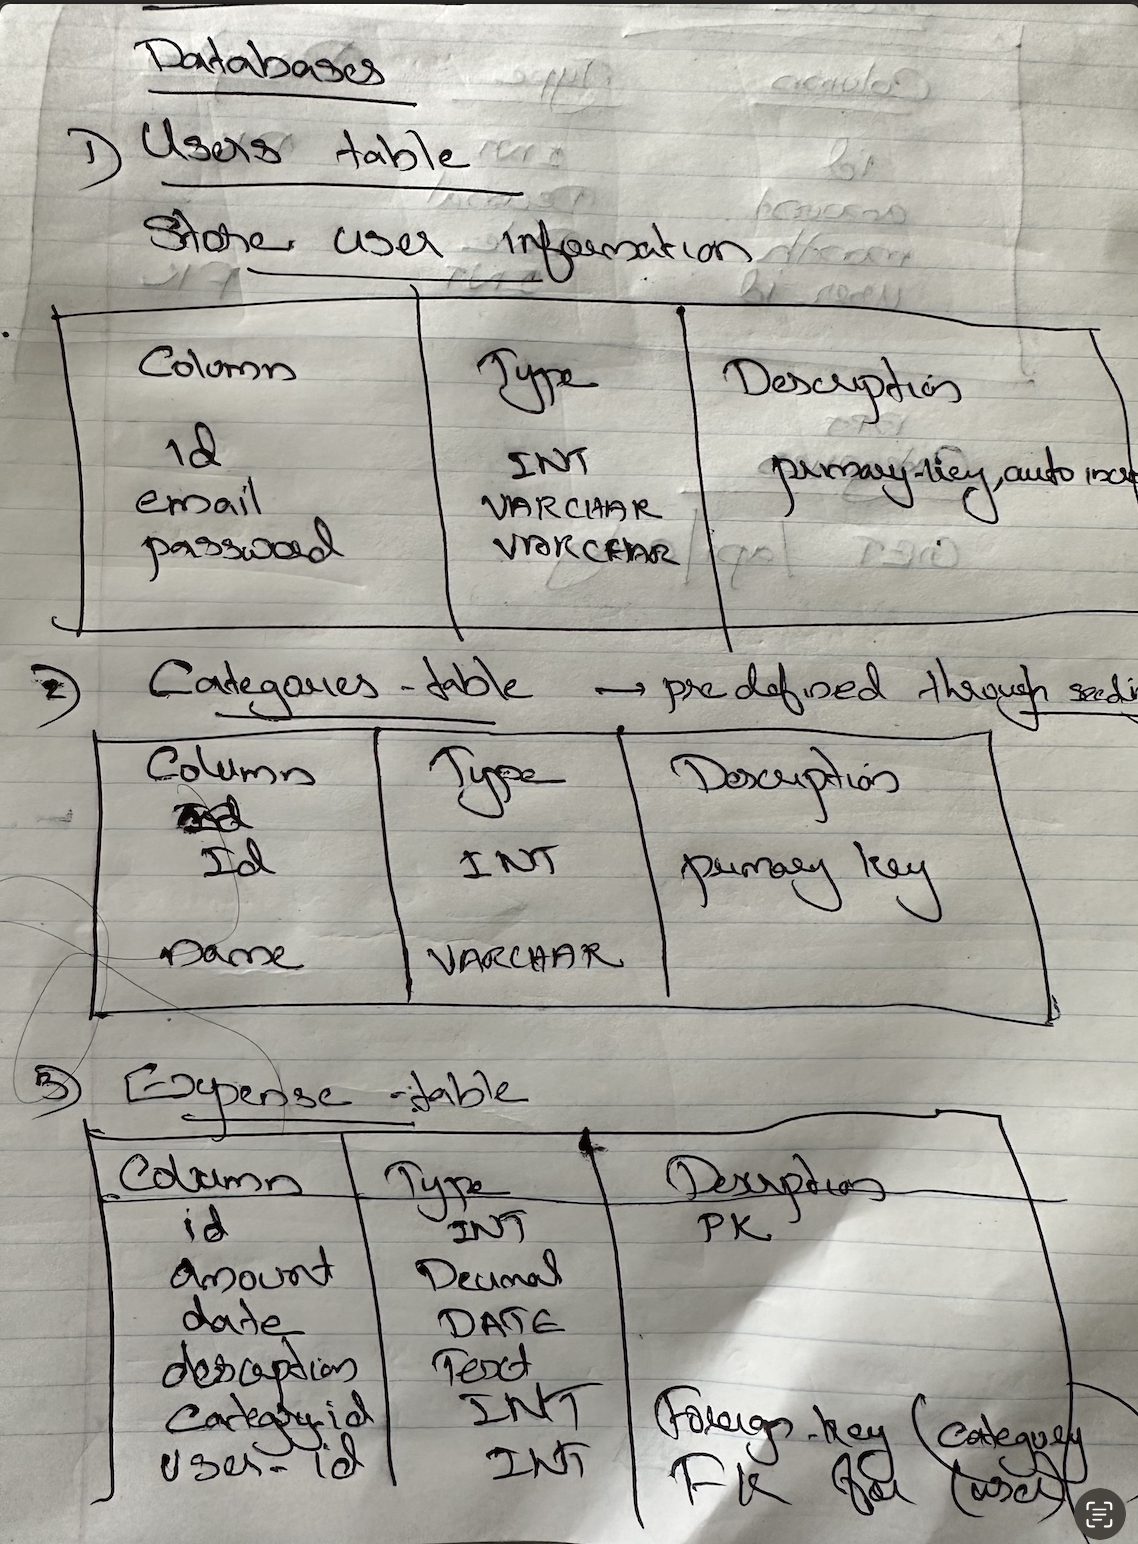 Databases
1) Users table
Store user information
Column Type Description
id INT primary-key, auto incr
email VARCHAR
password VARCHAR
2) Categories - table → predefined through seedi
Column Type Description
Id INT primary key
name VARCHAR
3) Expense - table
Column Type Description
id INT PK
amount Decimal
date DATE
description Text
Category-id INT Foreign-key (category
user-id INT FK for (user)